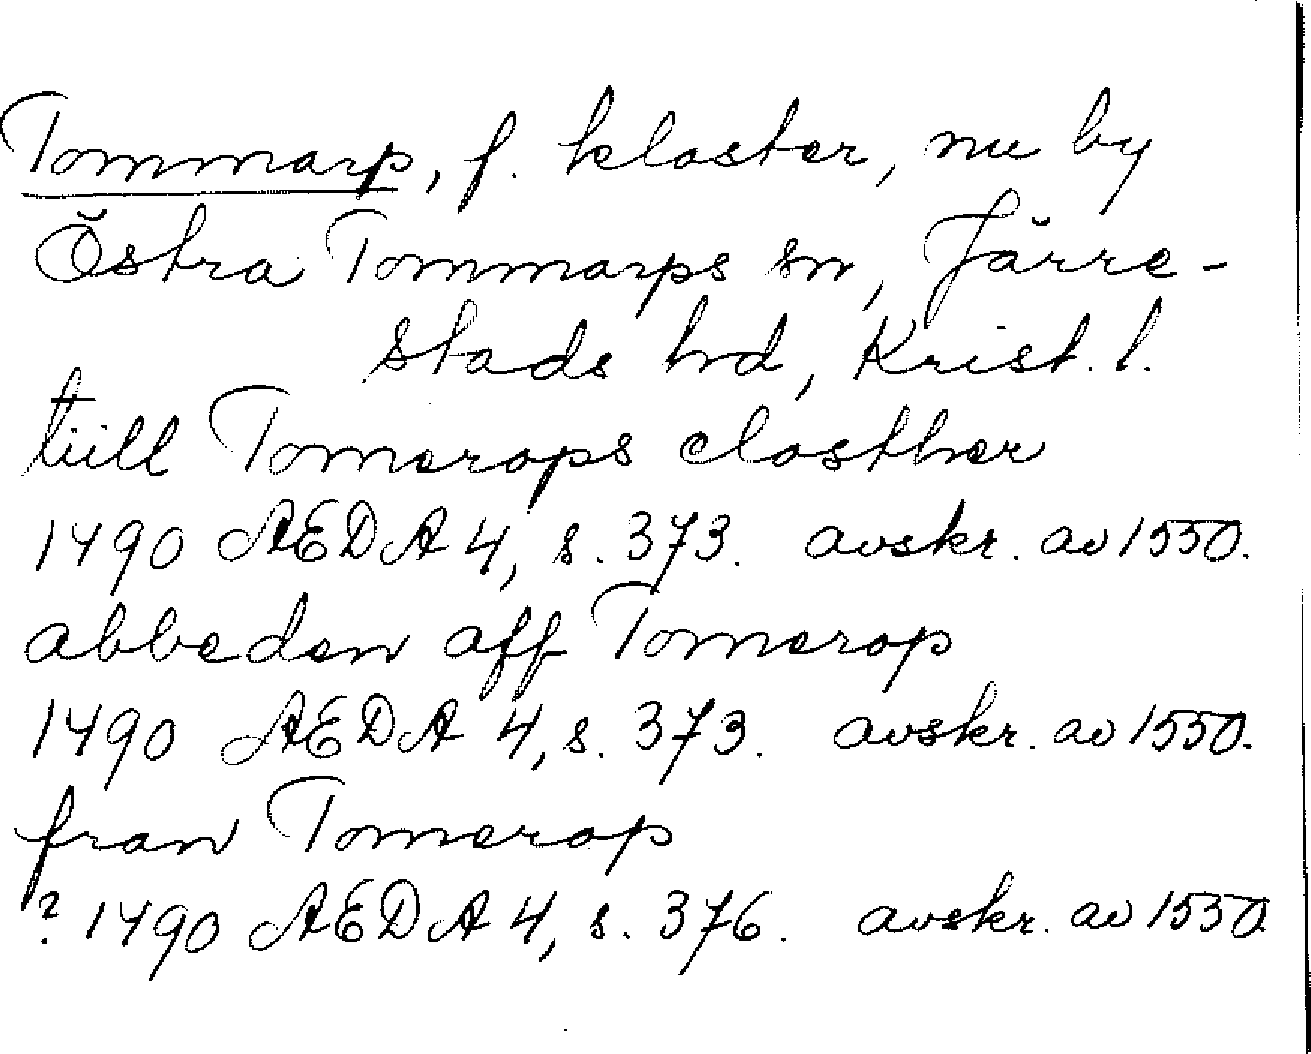 Tommarp, f. kloster, nu by
Östra Tommarps sn, Järre-
stads hd, Krist. l.
tiill Tomerops closther
1490 AEDA 4, s. 373. avskr. av 1550.
abbeden aff Tomerop
1490 AEDA 4, s. 373. avskr. av 1550.
fran Tomerop
? 1490 AEDA 4, s. 376. avskr. av 1550